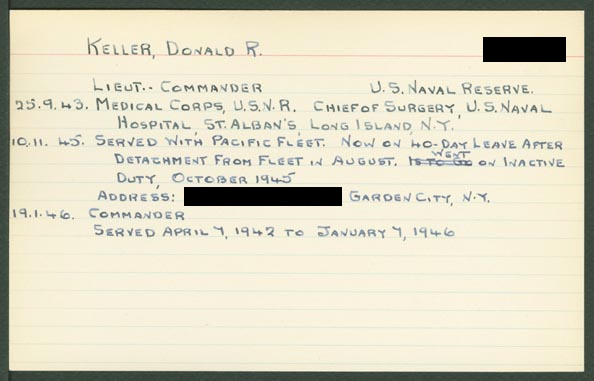 KELLER, DONALD R.
LIEUT.- COMMANDER U.S. NAVAL RESERVE.
25.9.43. MEDICAL CORPS, U.S.N.R. CHIEF OF SURGERY, U.S. NAVAL
HOSPITAL, ST. ALBAN'S, LONG ISLAND, N.Y.
10.11.45. SERVED WITH PACIFIC FLEET. NOW ON 40-DAY LEAVE AFTER
DETACHMENT FROM FLEET IN AUGUST. IS TO GO WENT ON INACTIVE
DUTY, OCTOBER 1945
ADDRESS: GARDEN CITY, N.Y.
19.1.46. COMMANDER
SERVED APRIL 7, 1942 TO JANUARY 7, 1946